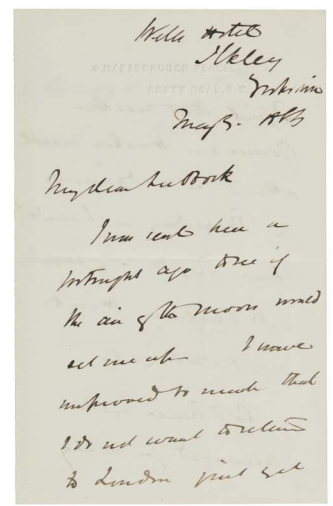 Wells Hotel
Ilkley
Yorkshire
May 3. 188
My dear Lubbock
I was sent here a
fortnight ago to see if
the air of the moors would
set me up I have
improved so much that
I do not want to return
to London just yet